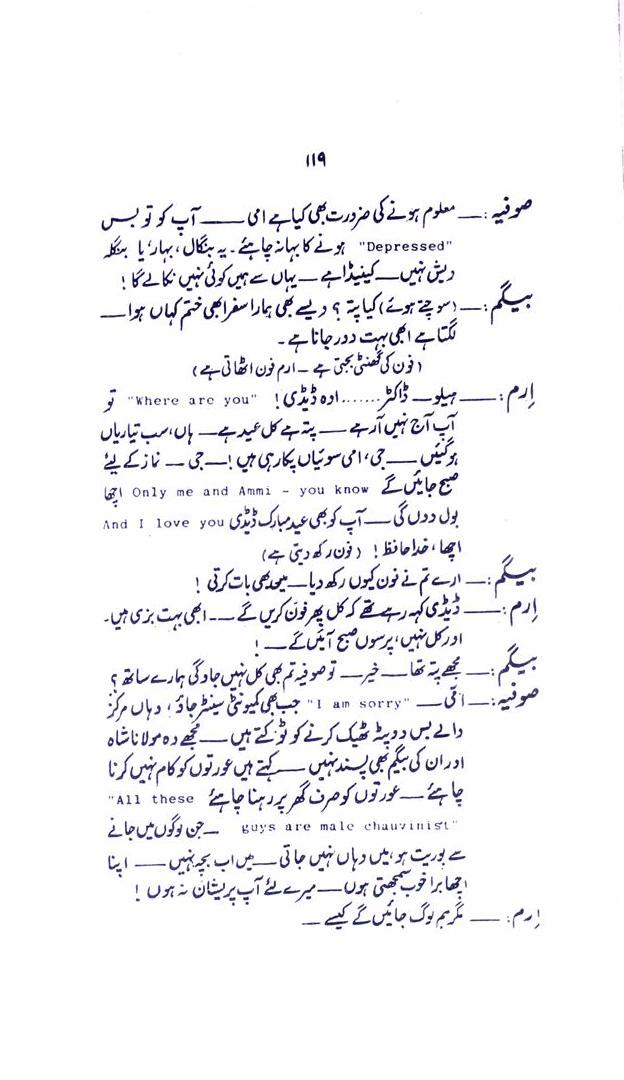 ۱۱۹
صوفیہ :ــــ معلوم ہونے کی ضرورت بھی کیا ہے امی ــــ آپ کو تو بس
"Depressed" ہونے کا بہانہ چاہئے ۔ یہ بنگال، بہار، یا بنگلہ
دیش نہیں ــــ کینیڈا ہے ــــ یہاں سے ہمیں کوئی نہیں نکالے گا !
بیگم :ــــ (سوچتے ہوئے) کیا پتہ ؟ ویسے بھی ہمارا سفر ابھی ختم کہاں ہوا ــــ
لگتا ہے ابھی بہت دور جانا ہے ۔
(فون کی گھنٹی بجتی ہے ــ ارم فون اٹھاتی ہے)
اِرم :ــــ ہیلو ــ ڈاکٹر....... اوہ ڈیڈی ! "Where are you" تو
آپ آج نہیں آرہے ــــ پتہ ہے کل عید ہے ــــ ہاں، سب تیاریاں
ہوگئیں ــــ جی، امی سوئیاں پکا رہی ہیں ! ــ جی ــ نماز کے لیئے
صبح جائیں گے Only me and Ammi - you know اچھا
بول دوں گی ــــ آپ کو بھی عید مبارک ڈیڈی And I love you
اچھا، خدا حافظ ! (فون رکھ دیتی ہے)
بیگم :ــــ ارے تم نے فون کیوں رکھ دیا ــــ میں بھی بات کرتی !
اِرم :ــــ ڈیڈی کہہ رہے تھے کہ کل پھر فون کریں گے ــــ ابھی بہت بزی ہیں۔
اور کل نہیں، پرسوں صبح آئیں گے ــــ !
بیگم :ــــ مجھے پتہ تھا ــــ خیر ــــ تو صوفیہ تم بھی کل نہیں جاؤ گی ہمارے ساتھ ؟
صوفیہ :ــــ امّی ــــ "I am sorry" جب بھی کمیونٹی سینٹر جاؤ، وہاں مرکز
والے بس دوپٹہ ٹھیک کرنے کو ٹوکتے ہیں ــــ مجھے وہ مولانا شاہ
اور ان کی بیگم بھی پسند نہیں ــــ کہتے ہیں عورتوں کو کام نہیں کرنا
چاہئے ــــ عورتوں کو صرف گھر پر رہنا چاہئے "All these
guys are male chauvinist" ــــ جن لوگوں میں جانے
سے بوریت ہو، میں وہاں نہیں جاتی ــــ میں اب بچہ نہیں ــــ اپنا
اچھا برا خوب سمجھتی ہوں ــــ میرے لئے آپ پریشان نہ ہوں !
اِرم :ــــ مگر ہم لوگ جائیں گے کیسے ــــ